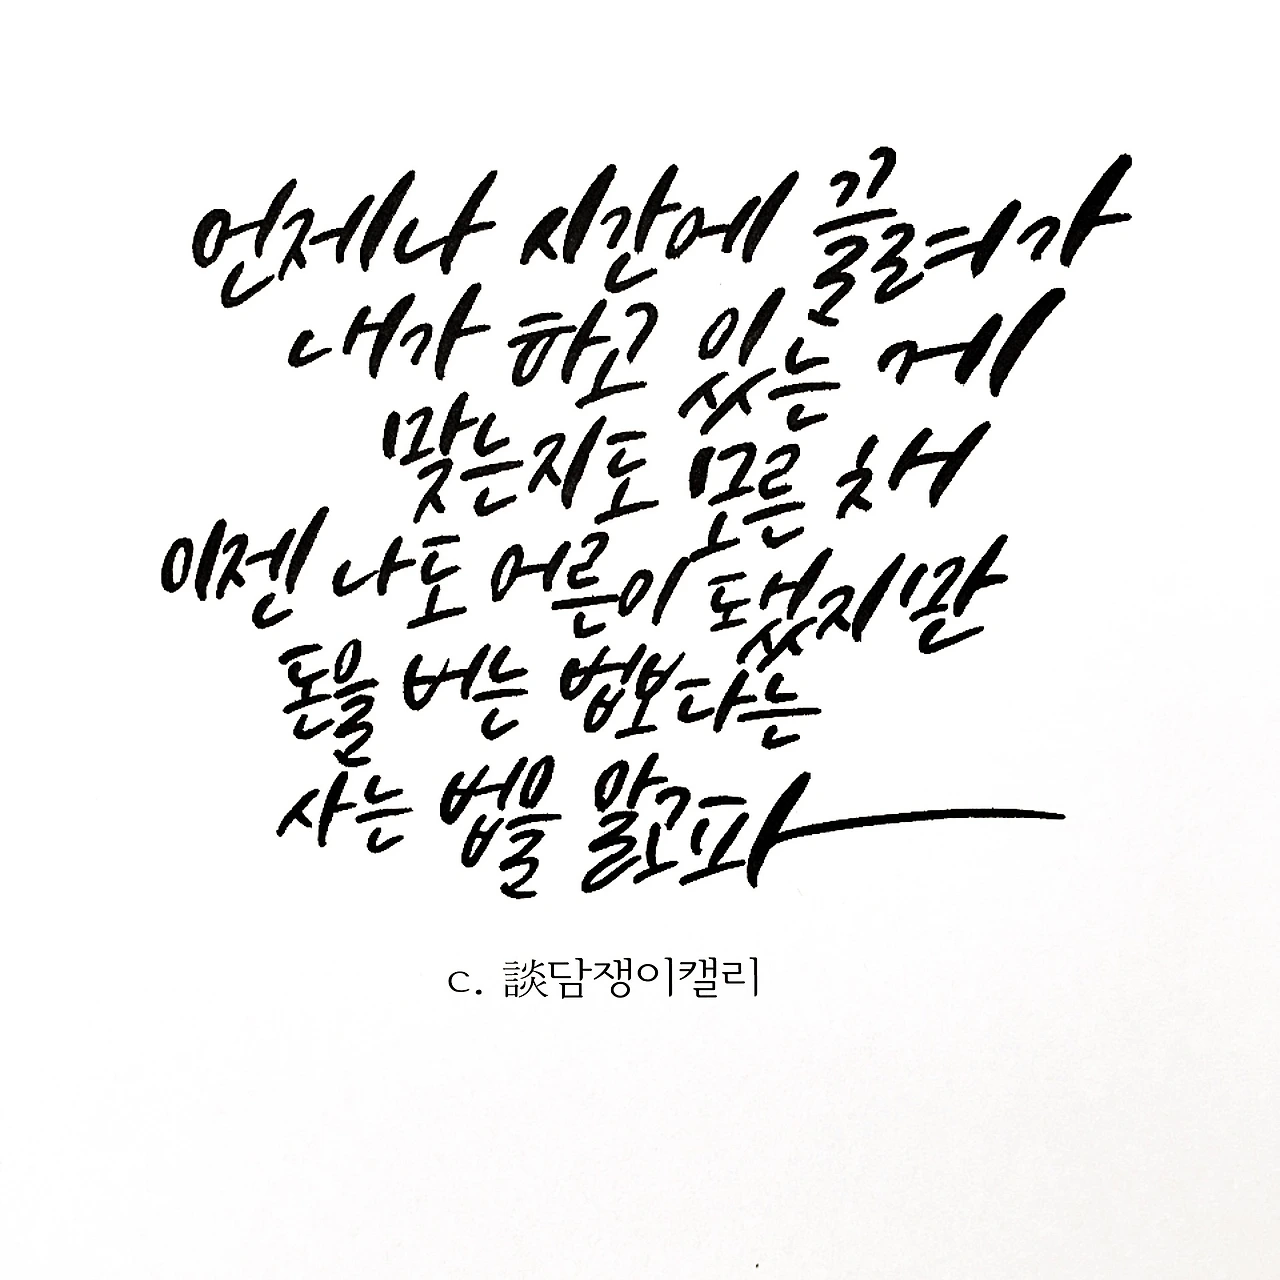 언제나 시간에 끌려가
내가 하고 있는 게
맞는지도 모른 채
이젠 나도 어른이 됐지만
돈을 버는 법보다는
사는 법을 알고파
c. 談담쟁이캘리